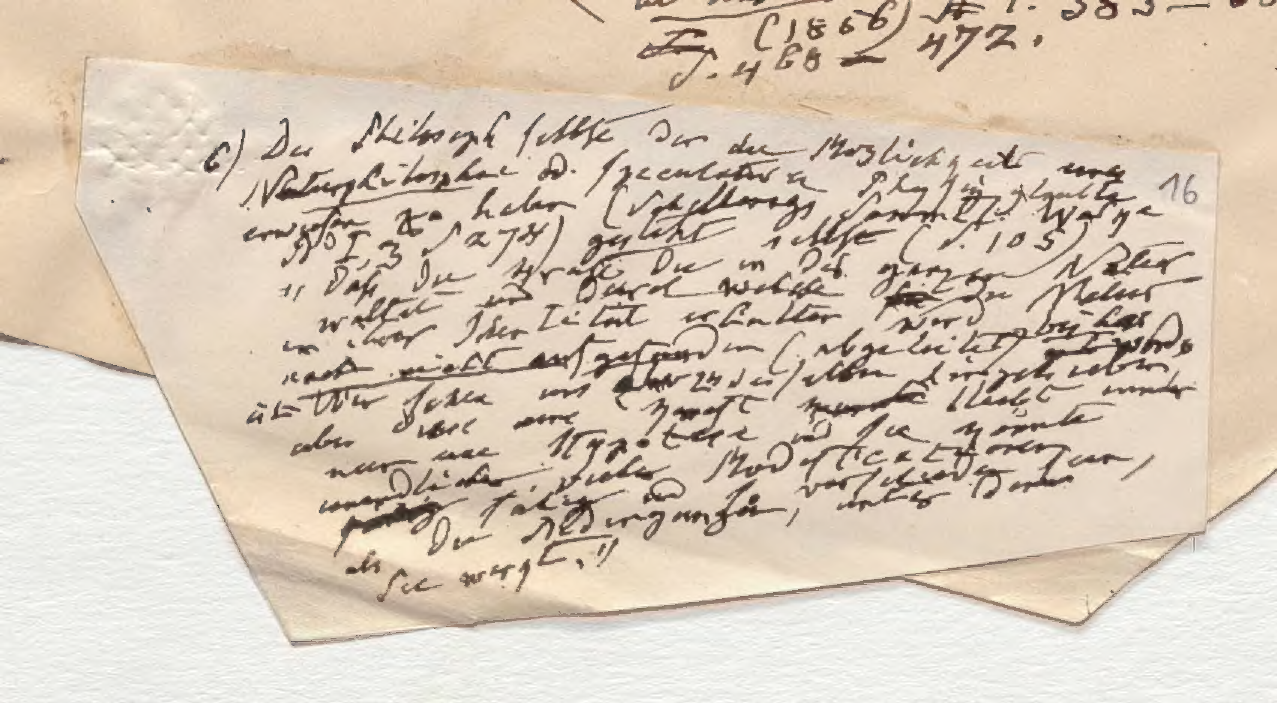 (1866) S. 383 –
S. 468 – 472.
16
6) Der Philosoph selbst der die Möglichkeit einer
Naturphilosophie od. speculativen Physik glaubte
erwiesen zu haben (Schellings Sämmtl. Werke
I, 3 S 274) gesteht selbst (S. 105)
"Daß die Kraft die in der ganzen Natur
waltet und durch welche die Natur
in ihrer Identität erhalten wird
noch nicht aufgefunden (abgeleitet) bisher
Wir sehen uns zu derselben hingetrieben
aber eine Kraft bleibt immer
nur eine Hypothese und sie könnte
unendlich vieler Modificationen
fähig und so verschieden sein,
als die Bedingungen, unter denen
sie wirkt."